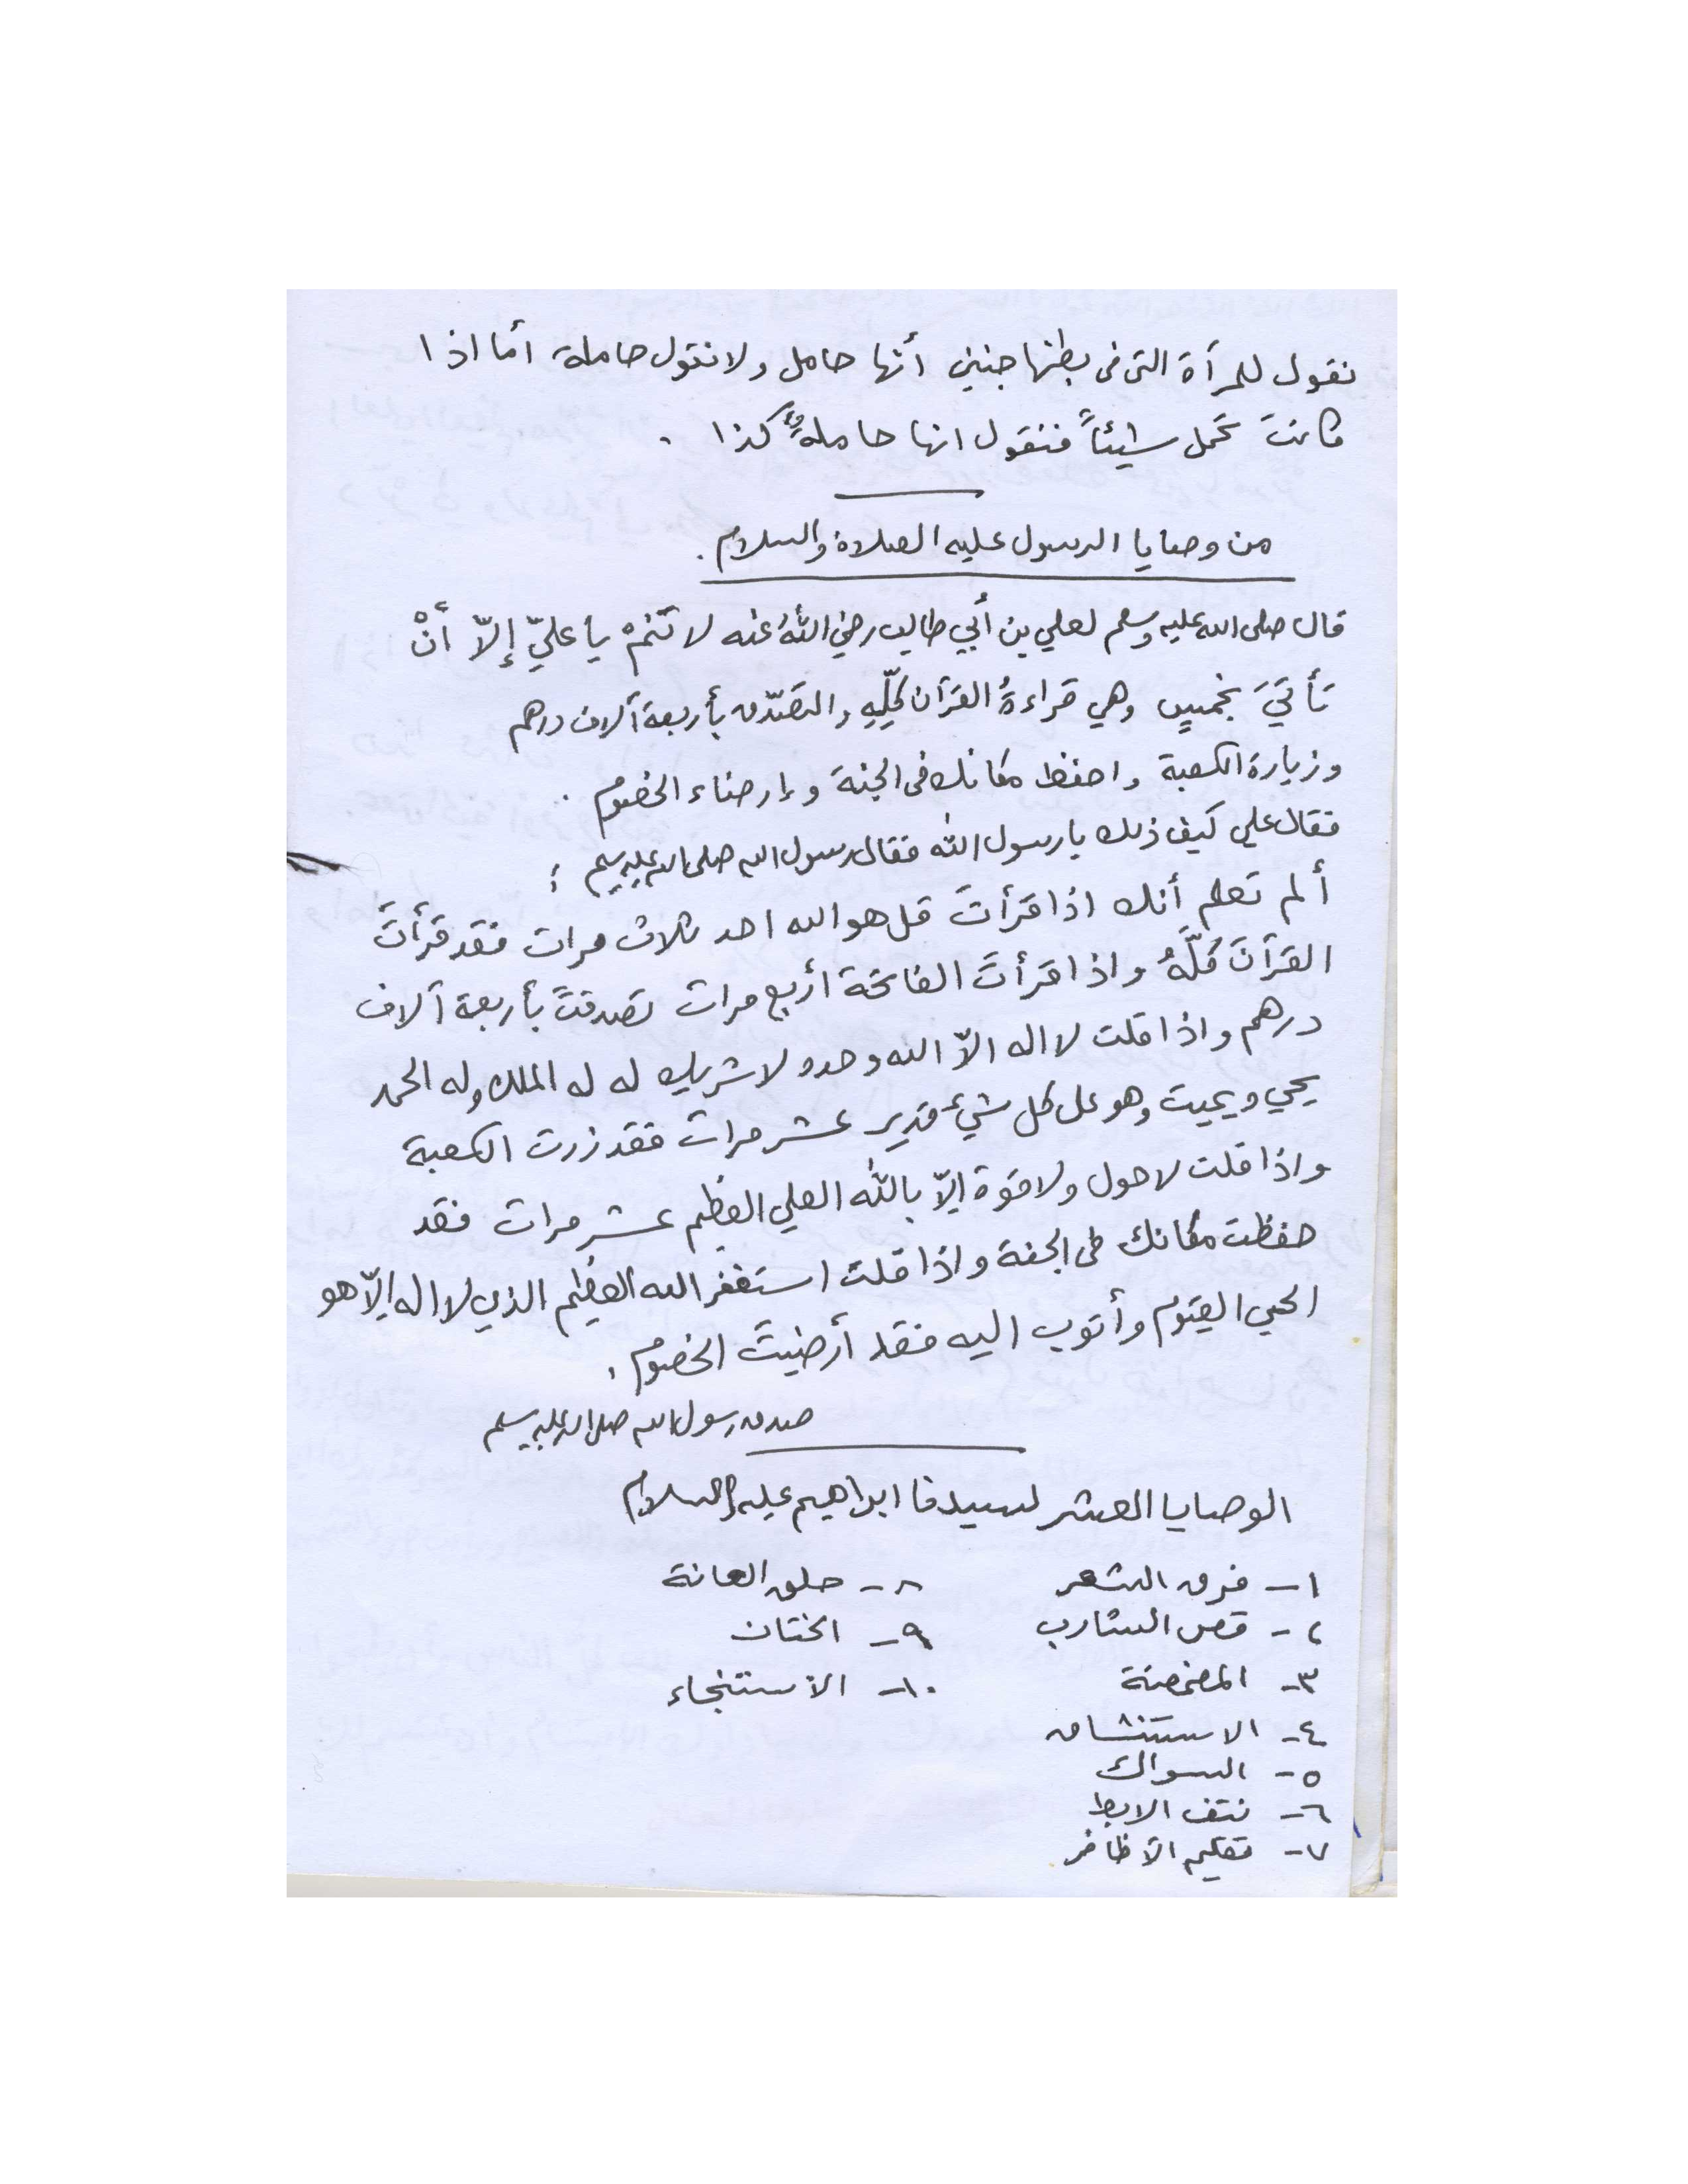 نقول للمرأة التى فى بطنها جنين أنها حامل ولا نقول حاملة أما اذا
كانت تحمل شيئاً فنقول انها حاملةٌ كذا .
من وصايا الرسول عليه الصلاة والسلام .
قال صلى الله عليه وسلم لعلي بن أبي طالب رضي اللهُ عنه لا تَنَمْ يا عليّ إلاّ أنْ
تَأتيَ بخمسٍ وهي قراءةُ القرآن كلِّهِ والتصَدّق بأربعة آلاف درهم
وزيارة الكعبة واحفظ مكانك فى الجنة وإرضاء الخصوم .
فقال علي كيف ذلك يا رسول الله فقال رسول الله صلى الله عليه وسلم :
ألم تعلم أنك اذا قرأتَ قل هو الله احد ثلاث مرات فقد قرأتَ
القرآنَ كُلَّهُ واذا قرأتَ الفاتحة أربع مرات تصدقتَ بأربعة آلاف
درهم واذا قلت لا اله الاّ الله وحده لا شريك له له الملك وله الحمد
يحيي ويميت وهو على كل شيءٍ قدير عشر مرات فقد زرت الكعبة
واذا قلت لا حول ولا قوة إلاّ بالله العلي العظيم عشر مرات فقد
حفظت مكانك فى الجنة واذا قلت استغفر الله العظيم الذي لا اله إلاّ هو
الحي القيّوم وأتوب اليه فقد أرضيتَ الخصوم .
صدق رسول الله صلى الله عليه وسلم
الوصايا العشر لسيدنا ابراهيم عليه السلام
١ – فرق الشعر
٢ – قص الشارب
٣ – المضمضة
٤ – الاستنشاق
٥ – السواك
٦ – نتف الابط
٧ – تقليم الأظافر
٨ – حلق العانة
٩ – الختان
١٠ – الأستنجاء